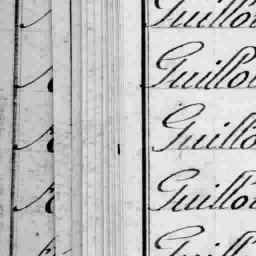 Guillo
Guillo
Guillo
Guillo
Guillo